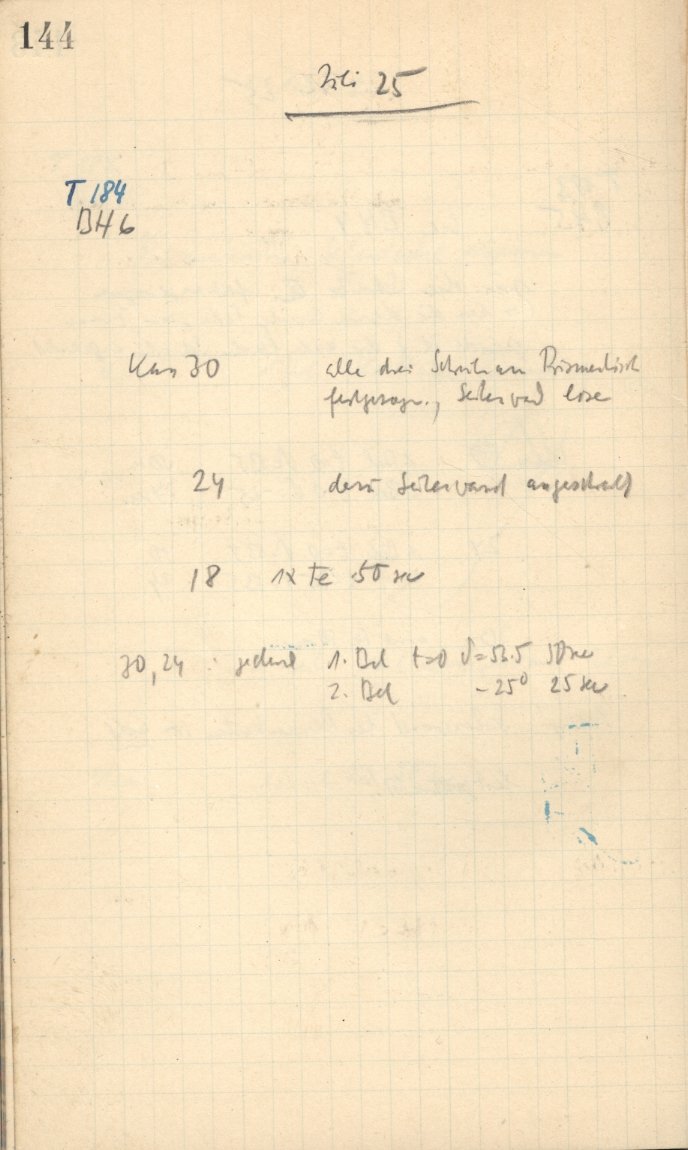 144
Juli 25
T 184
BH 6
Kam 30 alle drei Schrauben Prismentisch
festgezogen., Seitenwand lose
24 dann Seitenwand angeschraubt
18 1x Te 50 sec
30, 24 : jedesmal 1. Bel t=0 δ=53.5 50 sec
2. Bel -25° 25 sec